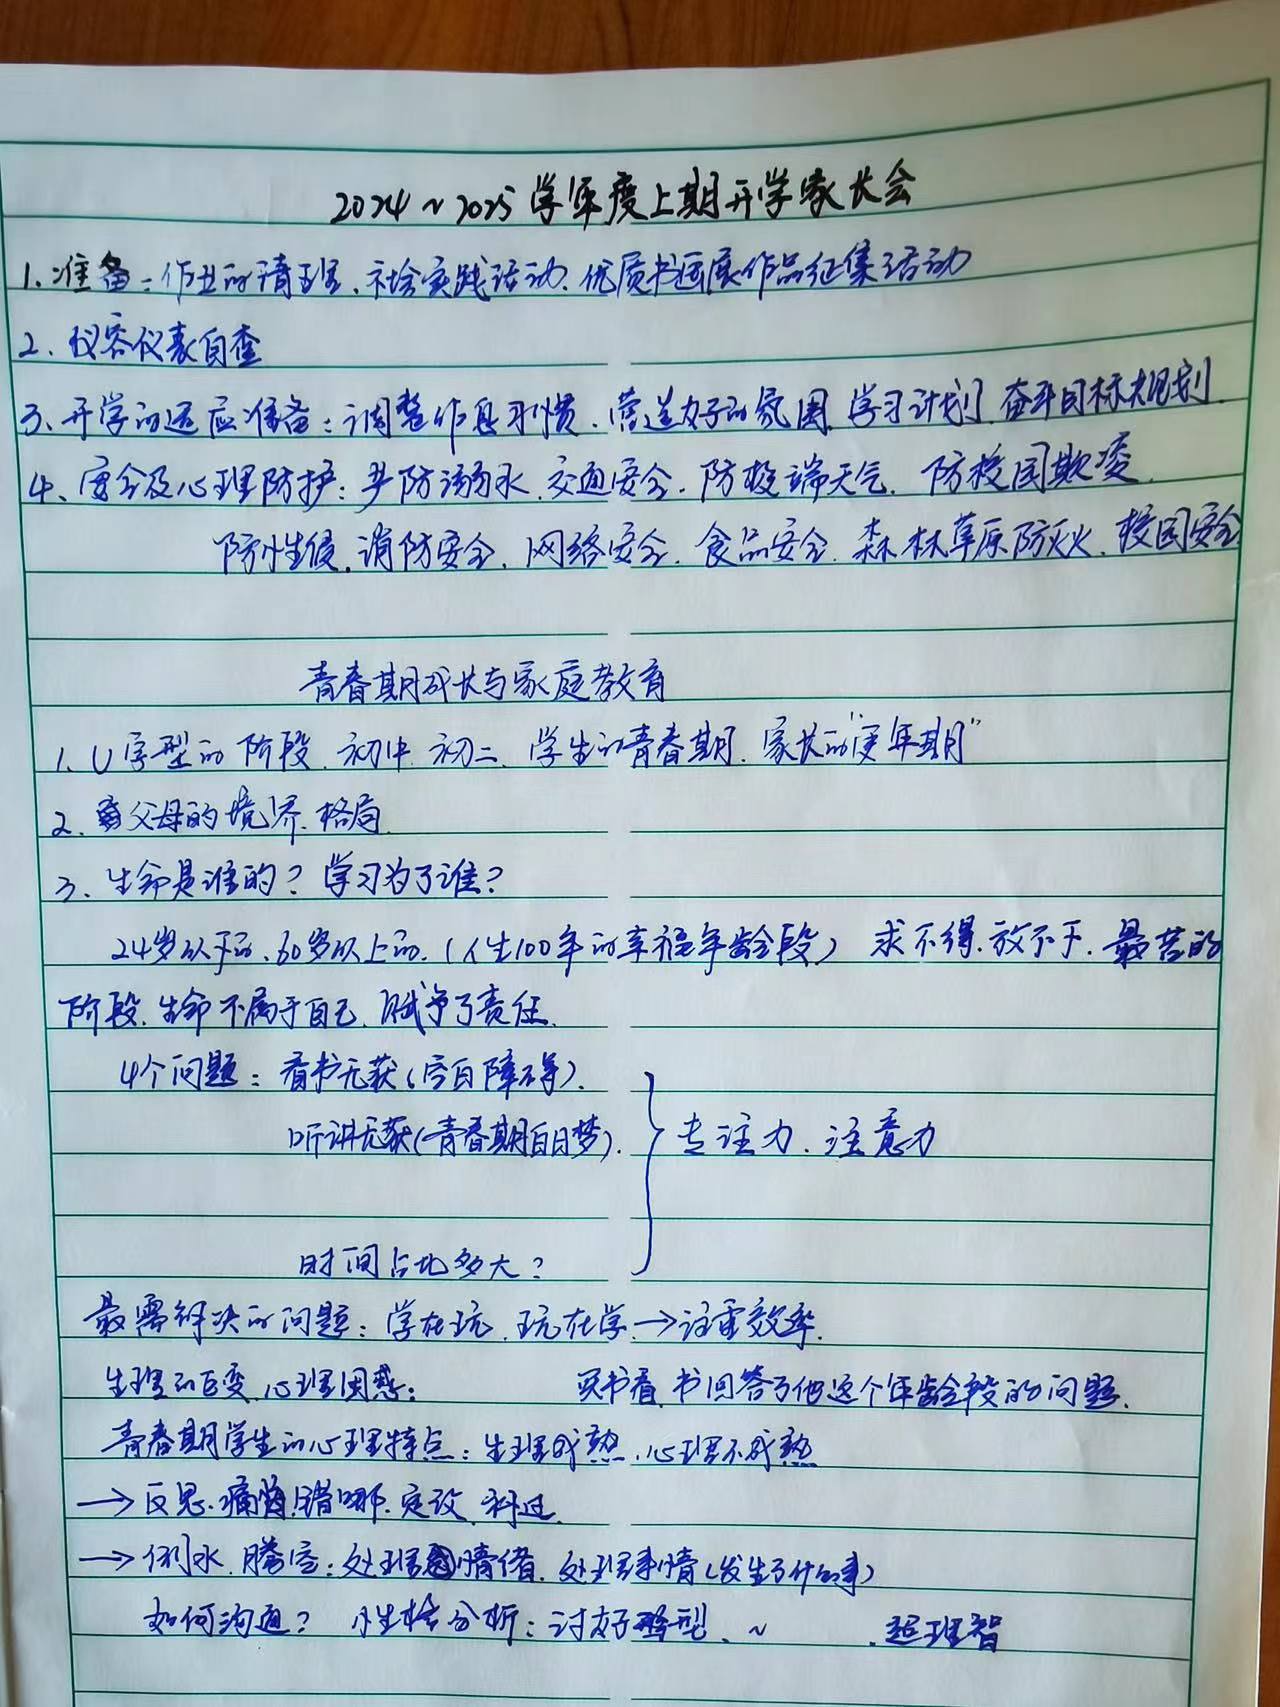 2024~2025学年度上期开学家长会
1、准备:作业的清理、社会实践活动、优质书画展作品征集活动
2、仪容仪表自查
3、开学的适应准备:调整作息习惯、营造好的氛围、学习计划、奋斗目标规划.
4、安全及心理防护:严防溺水、交通安全、防极端天气、防校园欺凌、
防性侵、消防安全、网络安全、食品安全、森林草原防灭火、校园安全
青春期成长与家庭教育
1、U字型的阶段、初中、初二、学生的青春期、家长的"更年期"
2、父母的境界、格局
3、生命是谁的?学习为了谁?
24岁以下的、60岁以上的、(人生100年的幸福年龄段) 求不得、放不下、最苦的
阶段、生命不属于自己、赋予了责任.
4个问题:看书无获(空白障碍).
听讲无获(青春期白日梦). 专注力、注意力
时间占比多大?
最需解决的问题:学在玩、玩在学→注重效率.
生理的巨变、心理困惑: 买书看、书回答了他这个年龄段的问题.
青春期学生的心理特点:生理成熟、心理不成熟
→反思、痛悔、错哪、定改、补过.
→倒水、腾空:处理情绪、处理事情(发生了什么事)
如何沟通? 性格分析:讨好型、~ 、超理智